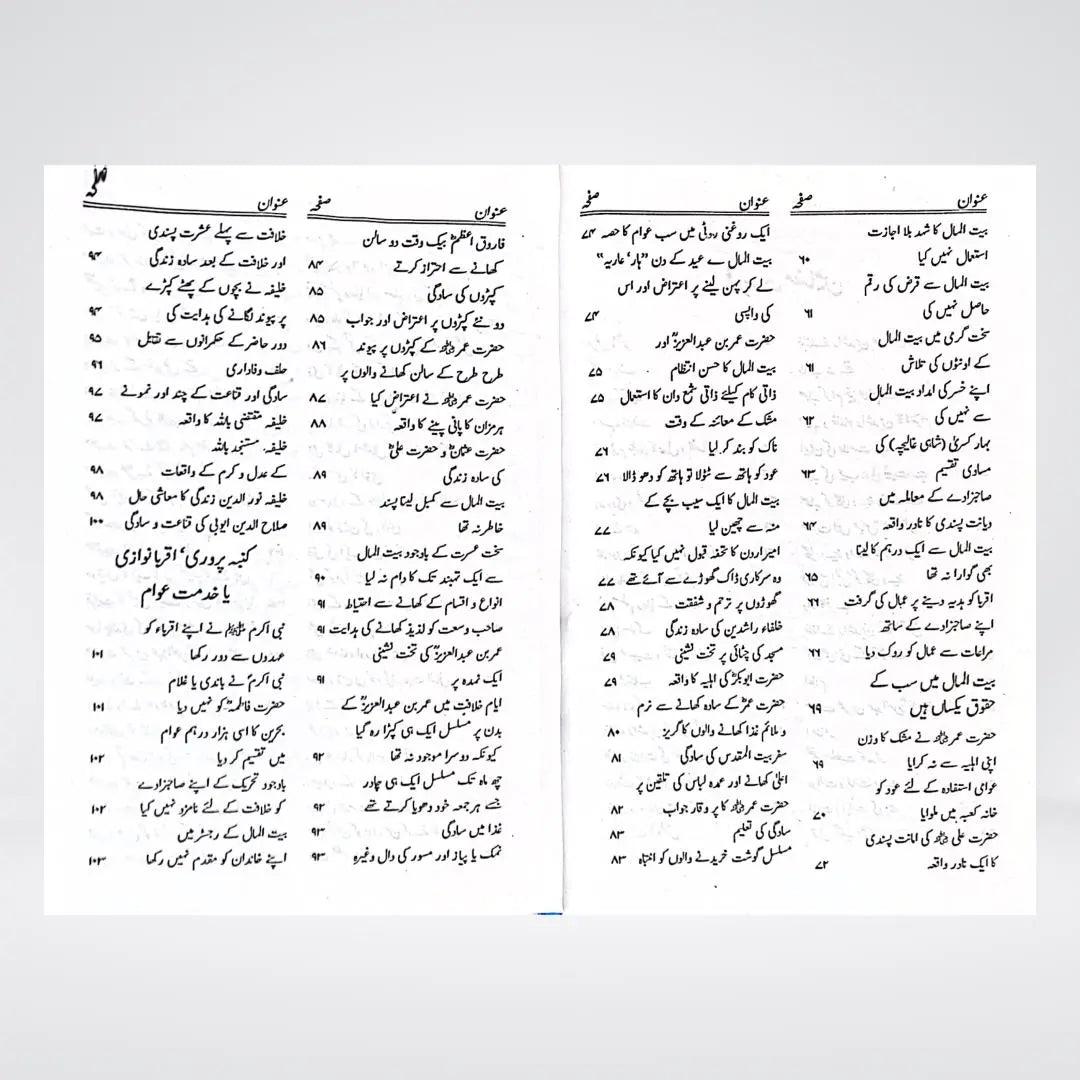 عنوان صفحہ
بیت المال کا شہد بلا اجازت
استعمال نہیں کیا ۶۰
بیت المال سے قرض کی رقم
حاصل نہیں کی ۶۱
سخت گرمی میں بیت المال
کے اونٹوں کی تلاش ۶۱
اپنے خسر کی امداد بیت المال
سے نہیں کی ۶۲
بہار کسریٰ (شاہی غالیچہ) کی
مساوی تقسیم ۶۳
صاجزادے کے معاملہ میں
دیانت پسندی کا نادر واقعہ ۶۴
بیت المال سے ایک درہم کا لینا
بھی گوارا نہ تھا ۶۵
اقربا کو ہدیہ دینے پر عمال کی گرفت ۶۶
اپنے صاجزادے کے ساتھ
مراعات سے عمال کو روک دیا ۶۶
بیت المال میں سب کے
حقوق یکساں ہیں ۶۹
حضرت عمرؓ نے مشک کا وزن
اپنی اہلیہ سے نہ کرایا ۶۹
عوامی استفادہ کے لئے عود کو
خانہ کعبہ میں ملوایا ۷۰
حضرت علیؓ کی امانت پسندی
کا ایک نادر واقعہ ۷۲
عنوان صفحہ
ایک روغنی روٹی میں سب عوام کا حصہ ۷۴
بیت المال سے عید کے دن "ہار' عاریہ"
لے کر پہن لینے پر اعتراض اور اس
کی واپسی ۷۴
حضرت عمر بن عبدالعزیزؒ اور
بیت المال کا حسن انتظام ۷۵
ذاتی کام کیلئے ذاتی شمع دان کا استعمال ۷۵
مشک کے معائنہ کے وقت
ناک کو بند کر لیا ۷۶
عود کو ہاتھ سے ٹٹولا تو ہاتھ کو دھو ڈالا ۷۶
بیت المال کا ایک سیب بچے کے
منہ سے چھین لیا ۷۷
امیر اردن کا تحفہ قبول نہیں کیا کیونکہ
وہ سرکاری ڈاک گھوڑے سے آئے تھے ۷۷
گھوڑوں پر ترحم و شفقت ۷۸
خلفاء راشدین کی سادہ زندگی ۷۸
مسجد کی چٹائی پر تخت نشینی ۷۹
حضرت ابوبکرؓ کی اہلیہ کا واقعہ ۷۹
حضرت عمرؓ کے سادہ کھانے سے نرم
و ملائم غذا کھانے والوں کا گریز ۸۰
سفر بیت المقدس کی سادگی ۸۱
اعلیٰ کھانے اور عمدہ لباس کی تلقین پر
حضرت عمرؓ کا پر وقار جواب ۸۲
سادگی کی تعلیم ۸۳
مسلسل گوشت خریدنے والوں کو انتباہ ۸۳
عنوان صفحہ
فاروق اعظمؓ بیک وقت دو سالن
کھانے سے احتراز کرتے ۸۴
کپڑوں کی سادگی ۸۵
دو نئے کپڑوں پر اعتراض اور جواب ۸۵
حضرت عمرؓ کے کپڑوں پر پیوند ۸۶
طرح طرح کے سالن کھانے والوں پر
حضرت عمرؓ نے اعتراض کیا ۸۷
ہرمزان کا پانی پینے کا واقعہ ۸۸
حضرت عثمانؓ و حضرت علیؓ
کی سادہ زندگی ۸۹
بیت المال سے کمبل لینا پسند
خاطر نہ تھا ۸۹
سخت عسرت کے باوجود بیت المال
سے ایک تہبند تک کا دام نہ لیا ۹۰
انواع و اقسام کے کھانے سے احتیاط ۹۱
صاحب وسعت کو لذیذ کھانے کی ہدایت ۹۱
عمر بن عبدالعزیزؒ کی تخت نشینی
ایک نمدہ پر ۹۱
ایام خلافت میں عمر بن عبدالعزیزؒ کے
بدن پر مسلسل ایک ہی کپڑا رہ گیا
کیونکہ دوسرا موجود نہ تھا ۹۲
چھ ماہ تک مسلسل ایک ہی چادر
جسے ہر جمعہ خود دھویا کرتے تھے ۹۲
غذا میں سادگی ۹۳
نمک یا پیاز اور مسور کی دال وغیرہ ۹۳
عنوان صفحہ
خلافت سے پہلے عشرت پسندی
اور خلافت کے بعد سادہ زندگی ۹۴
خلیفہ نے بچوں کے پھٹے کپڑے
پر پیوند لگانے کی ہدایت کی ۹۴
دور حاضر کے حکمرانوں سے تقابل ۹۵
حلف وفاداری ۹۶
سادگی اور قناعت کے چند اور نمونے ۹۷
خلیفہ مقتفی باللہ کا واقعہ ۹۷
خلیفہ مستنجد باللہ
کے عدل و کرم کے واقعات ۹۸
خلیفہ نور الدین زندگی کا معاشی حال ۹۸
صلاح الدین ایوبی کی قناعت و سادگی ۱۰۰
کنبہ پروری' اقربا نوازی
یا خدمت عوام
نبی اکرم ﷺ نے اپنے اقرباء کو
عہدوں سے دور رکھا ۱۰۱
نبی اکرمؐ نے باندی یا غلام
حضرت فاطمہؓ کو نہیں دیا ۱۰۱
بحرین کا اسی ہزار درہم عوام
میں تقسیم کر دیا ۱۰۲
باوجود تحریک کے اپنے صاجزادے
کو خلافت کے لئے نامزد نہیں کیا ۱۰۲
بیت المال کے رجسٹر میں
اپنے خاندان کو مقدم نہیں رکھا ۱۰۳